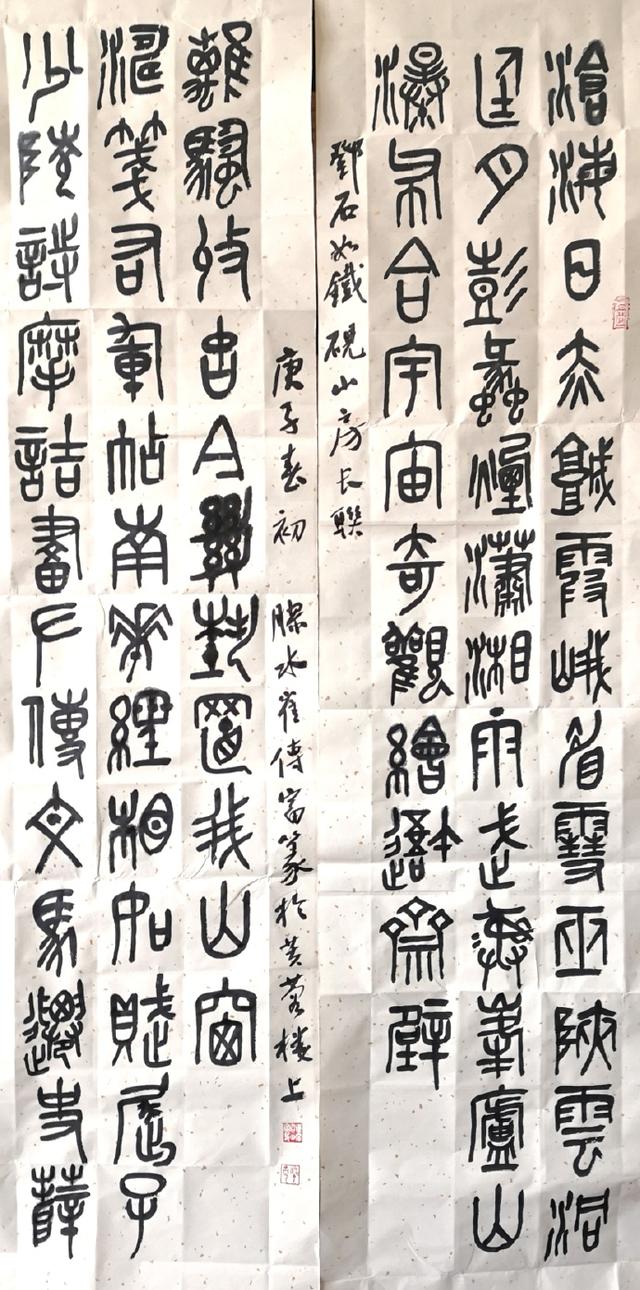 滄海日赤城霞峨眉雪巫陝雲洞
庭月彭蠡煙瀟湘雨武夷峯廬山
瀑布合宇宙奇觀繪吾齋壁
鄧石如鐵硯山房長聯
少陵詩摩詰畫左傳文馬遷史薛
濤箋右軍帖南華經相如賦屈子
離騷收古今絕藝置我山窗
庚子春初 水崔傳富篆於芙蓉樓上